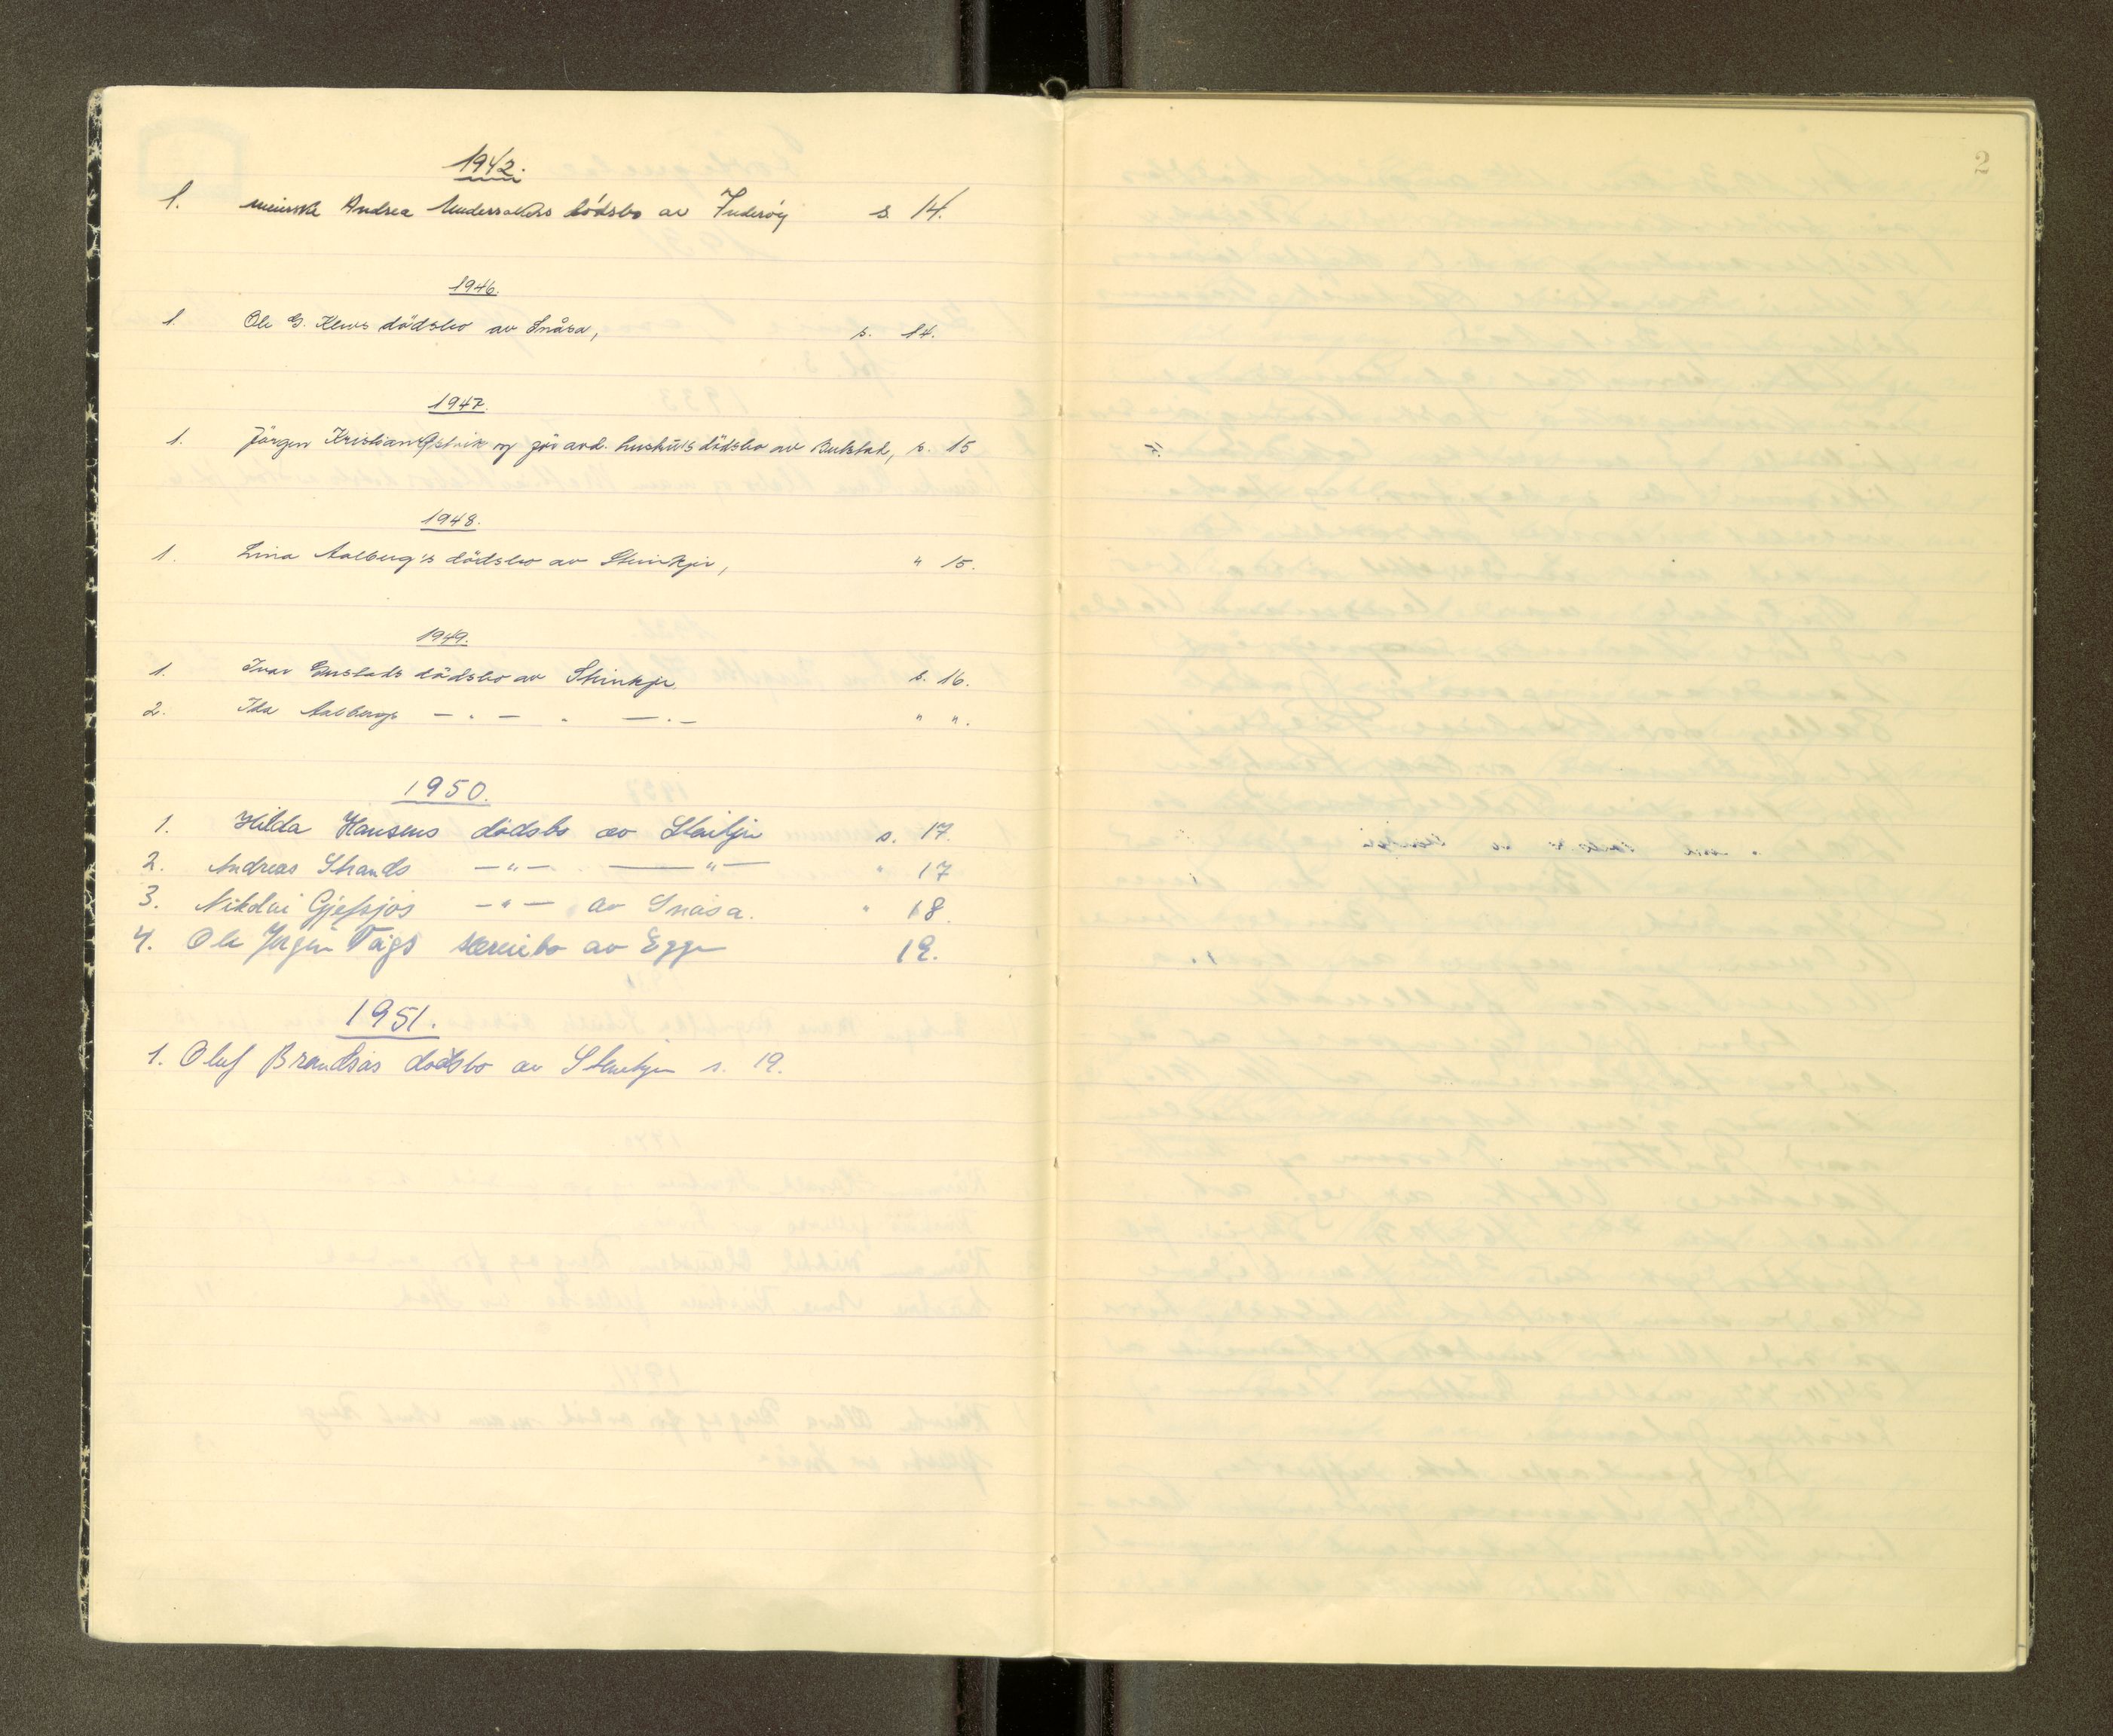 1942.
1. Andrea dödsbo av Inderöy s. 14.
1946.
1. Ole G. Klevs dödsbo av Snåsa, s. 14.
1947.
1. Jörgen Kristian og dödsbo av Beitstad, s. 15
1948.
1. Lina Aalberg's dödsbo av Steinkjer, " 15.
1949.
1. Ivar Gustads dödsbo av Steinkjer s. 16.
2. Ida Aalbergs — " — " — " — " ".
1950.
1. Hilda Hansens dödsbo av Steinkjer s. 17.
2. Andreas Strands — " — — " — " 17
3. Nikolai Gjefsjøs — " — av Snåsa. " 18.
4. Ole Jørgen av Egge 19.
1951.
1. Oluf Brandsås dødsbo av Steinkjer s. 19.
2